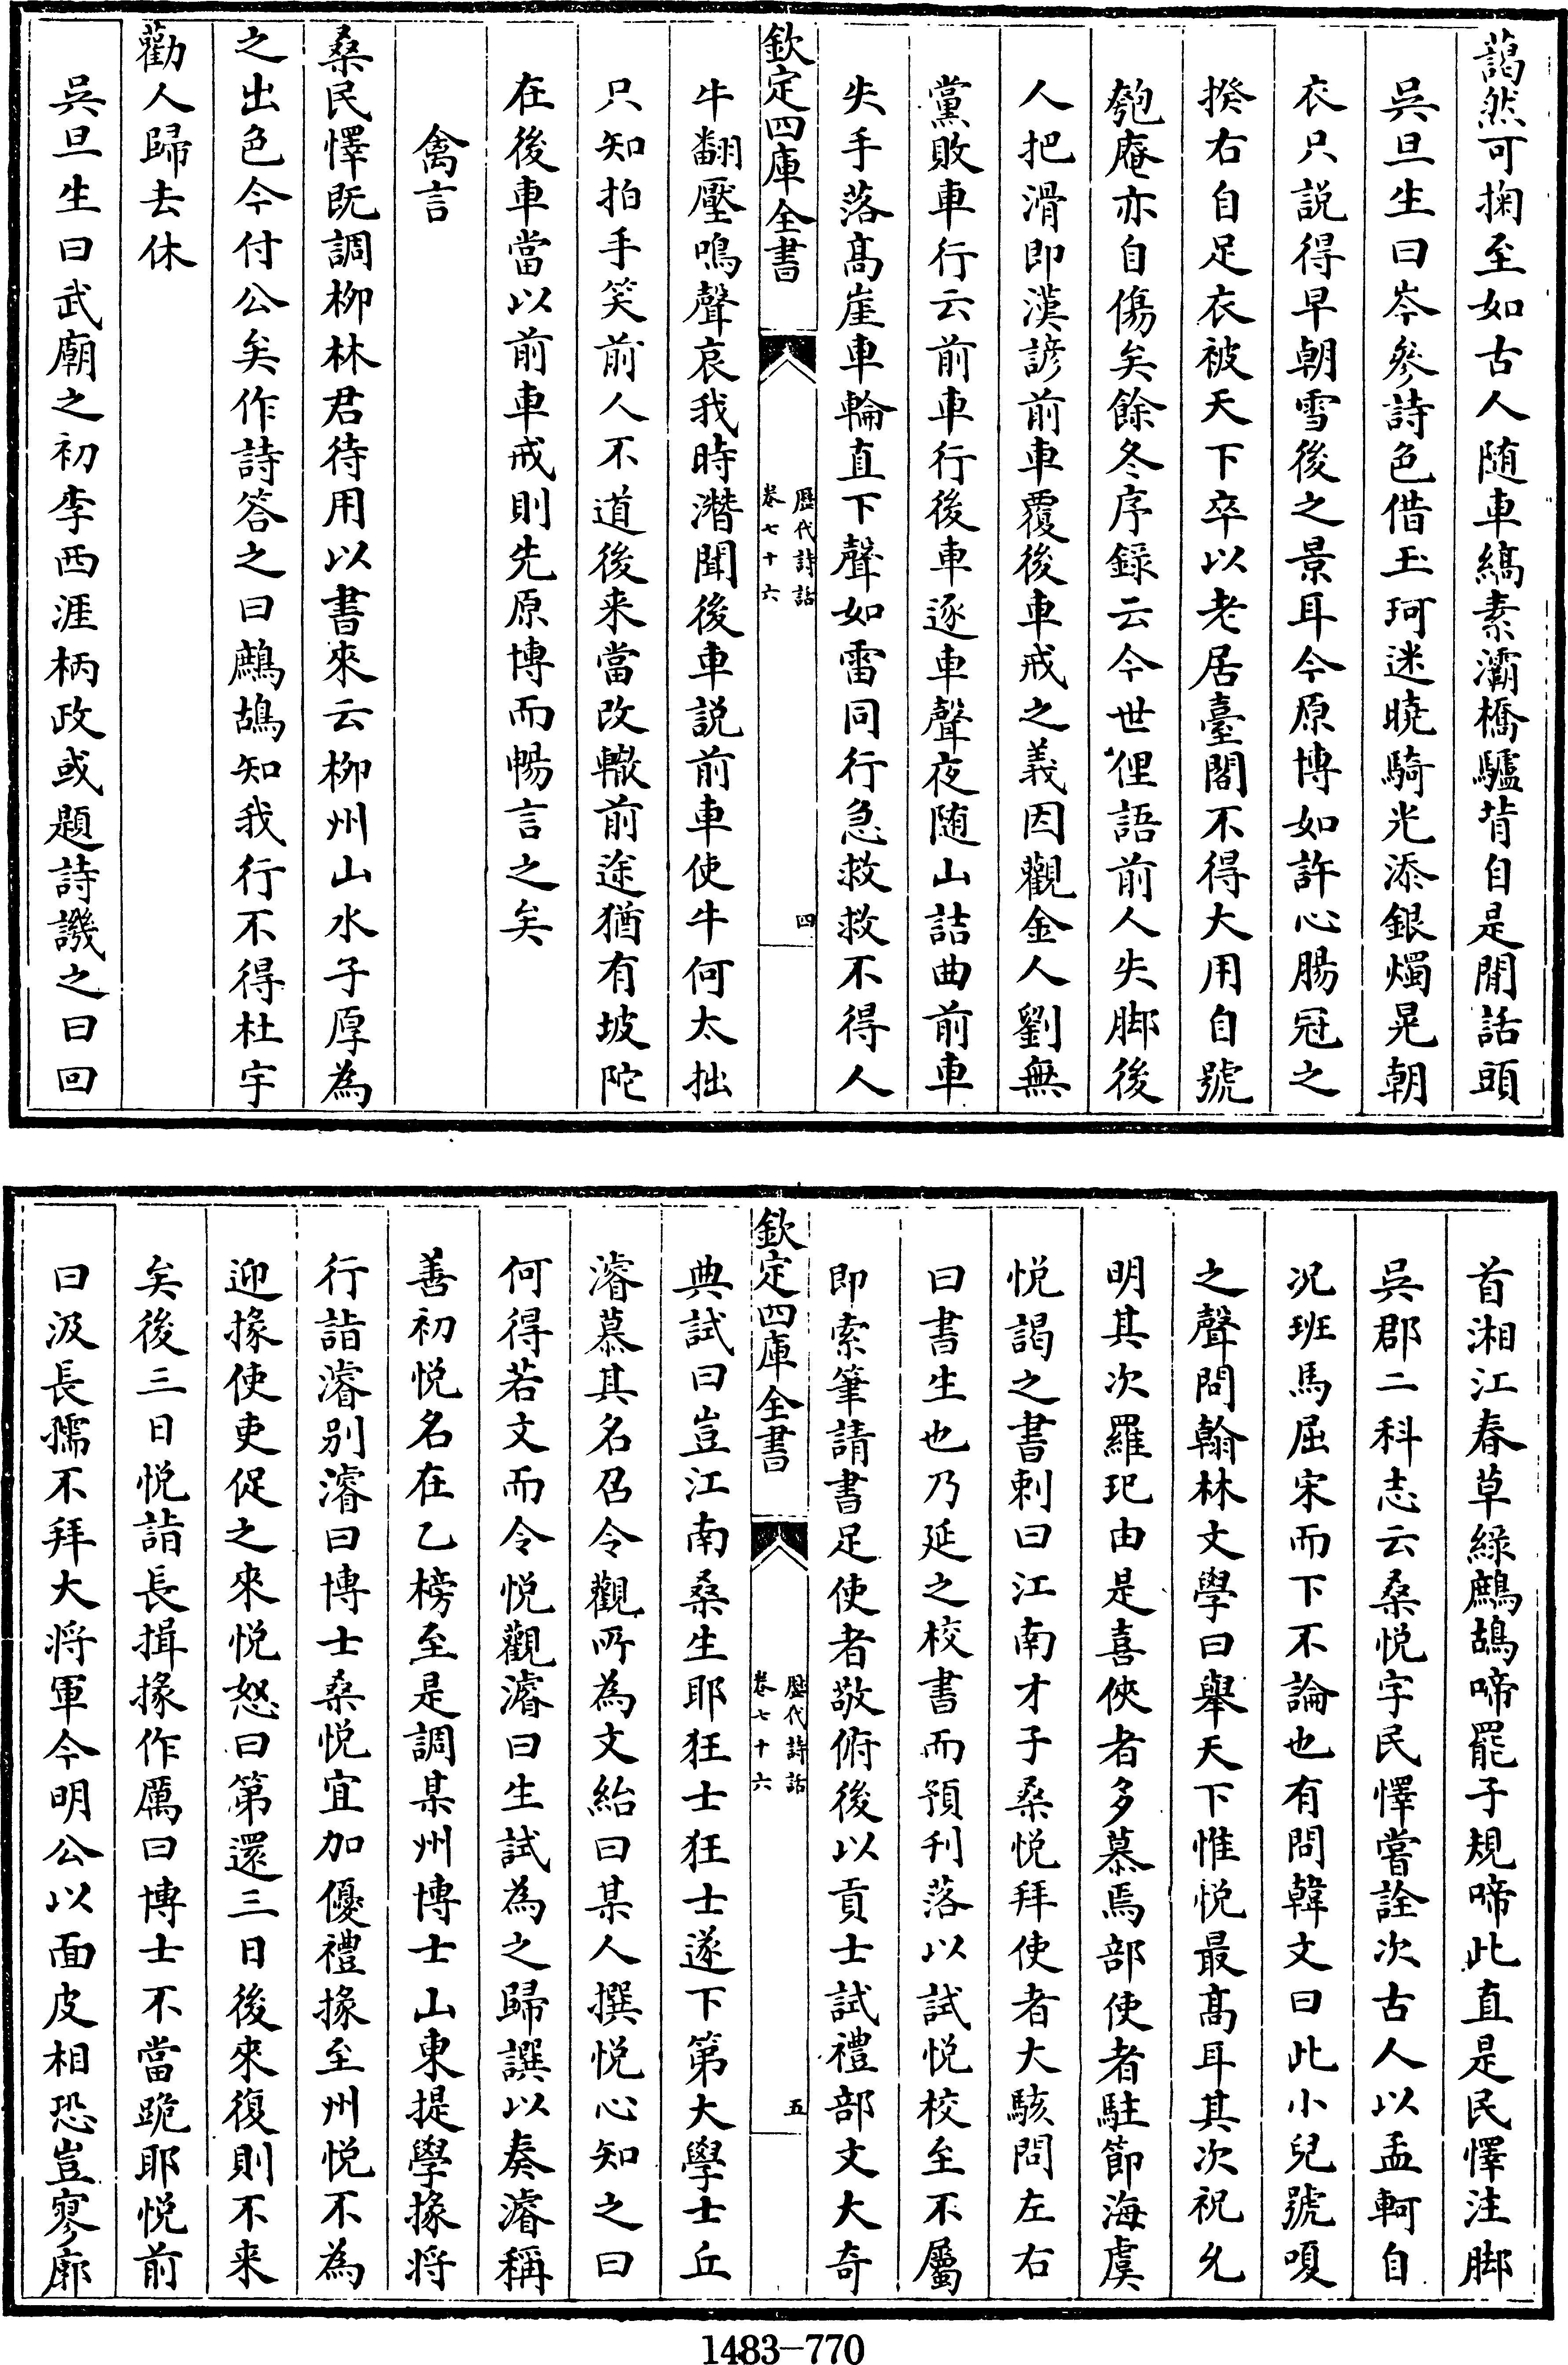 藹然可掬至如古人随車縞素灞橋驢背自是閒話頭
吳旦生曰岑參詩色借玉珂迷曉騎光添銀燭晃朝
衣只説得早朝雪後之景耳今原博如許心腸冠之
揆右自足衣被天下卒以老居臺閣不得大用自號
匏庵亦自傷矣餘冬序録云今世俚語前人失脚後
人把滑即漢諺前車覆後車戒之義因觀金人劉無
黨敗車行云前車行後車逐車聲夜随山詰曲前車
失手落髙崖車輪直下聲如雷同行急救救不得人
欽定四庫全書
歴代詩話
卷七十六
四
牛翻壓鳴聲哀我時潛聞後車説前車使牛何太拙
只知拍手笑前人不道後来當改轍前途猶有坡陀
在後車當以前車戒則先原博而暢言之矣
禽言
桑民懌既調柳林君待用以書來云柳州山水子厚為
之出色今付公矣作詩答之曰鷓鴣知我行不得杜宇
勸人歸去休
吳旦生曰武廟之初李西涯柄政或題詩譏之曰回
首湘江春草緑鷓鴣啼罷子規啼此直是民懌注脚
吳郡二科志云桑悦字民懌嘗詮次古人以孟軻自
况班馬屈宋而下不論也有問韓文曰此小兒號嗄
之聲問翰林文學曰舉天下惟悦最髙耳其次祝允
明其次羅玘由是喜俠者多慕焉部使者駐節海虞
悦謁之書刺曰江南才子桑悦拜使者大駭問左右
曰書生也乃延之校書而預刋落以試悦校至不屬
即索筆請書足使者敬俯後以貢士試禮部文大奇
欽定四庫全書
歴代詩話
卷七十六
五
典試曰豈江南桑生耶狂士狂士遂下第大學士丘
濬慕其名召令觀所為文紿曰某人撰悦心知之曰
何得若文而令悦觀濬曰生試為之歸譔以奏濬稱
善初悦名在乙榜至是調某州博士山東提學掾将
行詣濬别濬曰博士桑悦宜加優禮掾至州悦不為
迎掾使吏促之來悦怒曰第還三日後來復則不来
矣後三日悦詣長揖掾作厲曰博士不當跪耶悦前
曰汲長孺不拜大将軍今明公以面皮相恐豈寥廓
1483-770